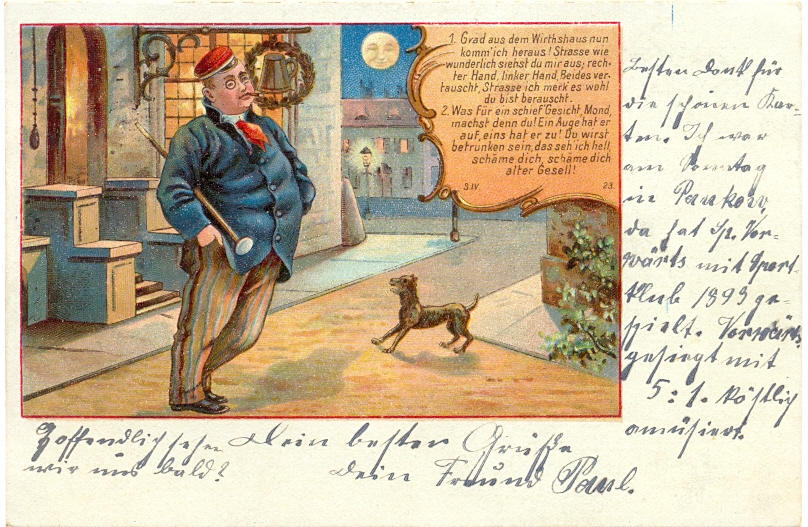 1. Grad aus dem Wirthshaus nun
komm'ich heraus! Strasse wie
wunderlich siehst du mir aus; rech-
ter Hand, linker Hand, Beides ver-
tauscht, Strasse ich merk'es wohl
du bist berauscht.
2. Was für ein schief Gesicht, Mond,
machst denn du! Ein Auge hat er
auf, eins hat er zu! Du wirst
betrunken sein, das seh'ich hell,
schäme dich, schäme dich
alter Gesell!
S.IV. 23.
Besten Dank für
die schönen Kar-
ten. Ich war
am Sonntag
in Pankow,
da hat Sp. Vor-
wärts mit Sport-
klub 1893 ge-
spielt. Vorwärts
gesiegt mit
5:1. Köstlich
amüsiert.
Hoffendlich sehen
wir uns bald?
Dein besten Grüße
Dein Freund Paul.